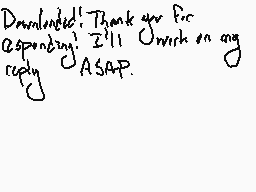 Downloaded! Thank you for
responding! I'll work on my
reply ASAP.